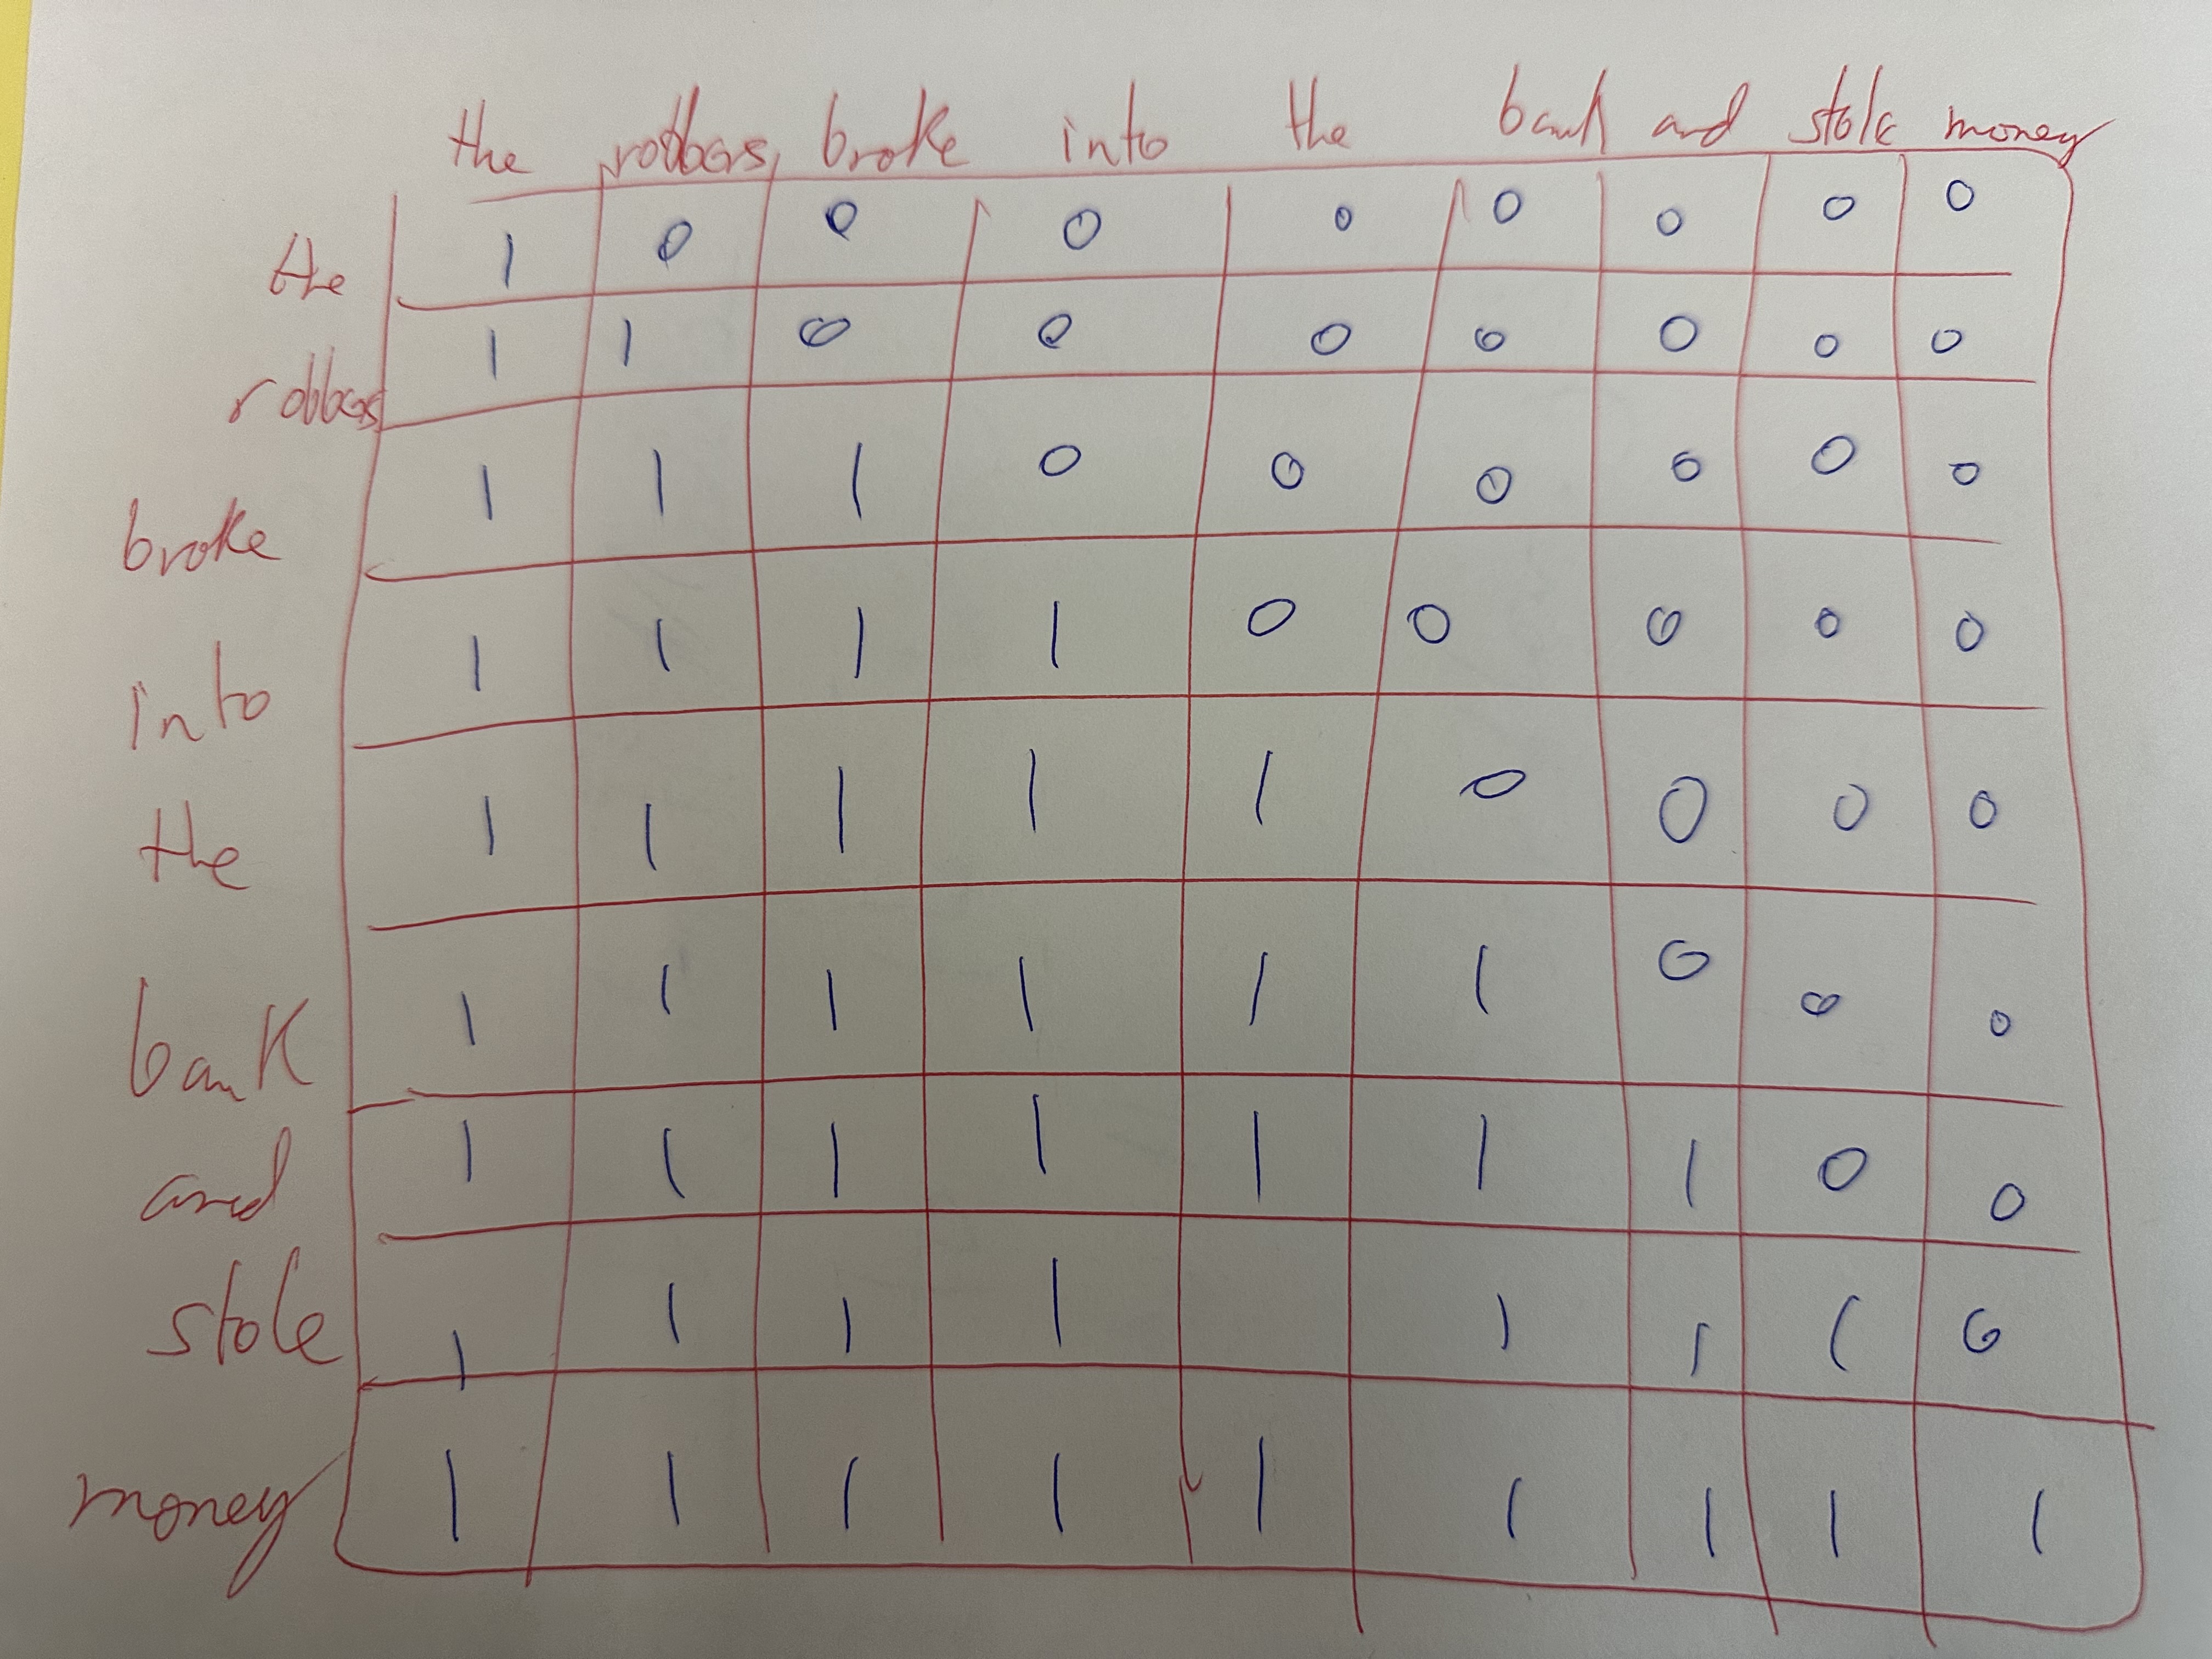 the robbers broke into the bank and stole money
the 1 0 0 0 0 0 0 0 0
robbers 1 1 0 0 0 0 0 0 0
broke 1 1 1 0 0 0 0 0 0
into 1 1 1 1 0 0 0 0 0
the 1 1 1 1 1 0 0 0 0
bank 1 1 1 1 1 1 0 0 0
and 1 1 1 1 1 1 1 0 0
stole 1 1 1 1 1 1 1 0
money 1 1 1 1 1 1 1 1 1